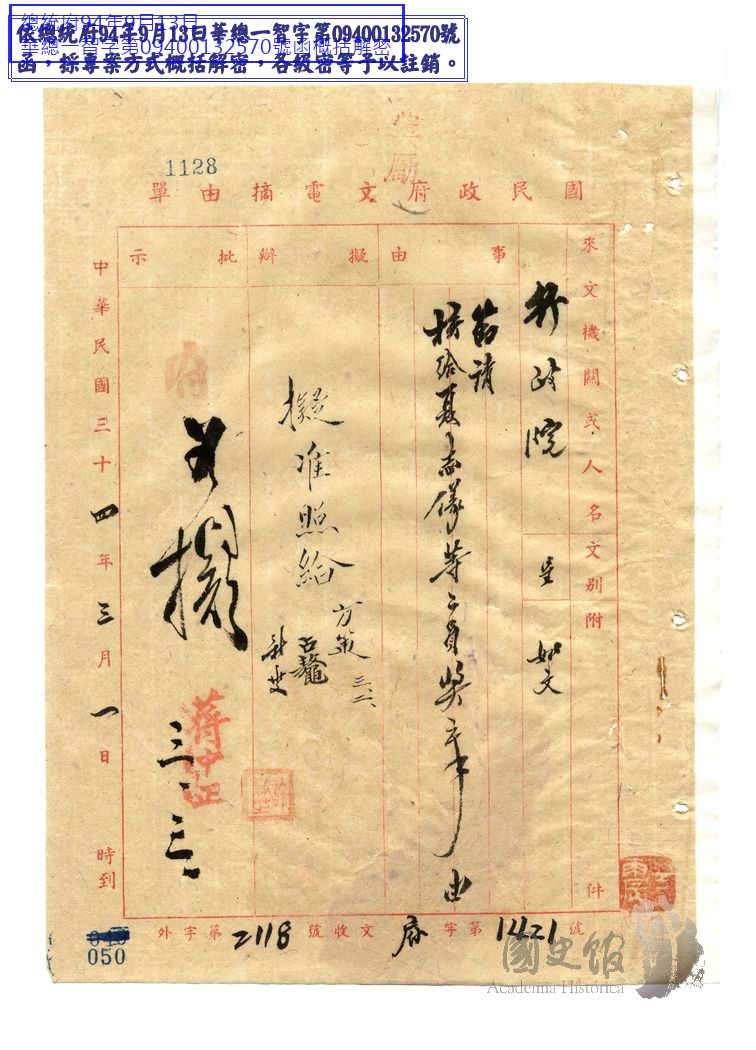 總統府94年9月13日
華總一智字第09400132570號函概括解密
依總統府94年9月13日華總一智字第09400132570號
函，採專案方式概括解密，各級密等予以註銷。
獎勵
1128
國民政府文電摘由單
來文機關或人名
文別
附
件
行政院
呈
如文
事由
擬辦
批示
為請
核給夏志儀等二員獎章由
擬准照給
三.二.
如擬
蔣中正
三.三.
中華民國三十四年三月一日
時到
外字第2118號
收文府字第1421號
050
國史館
Academia Historica